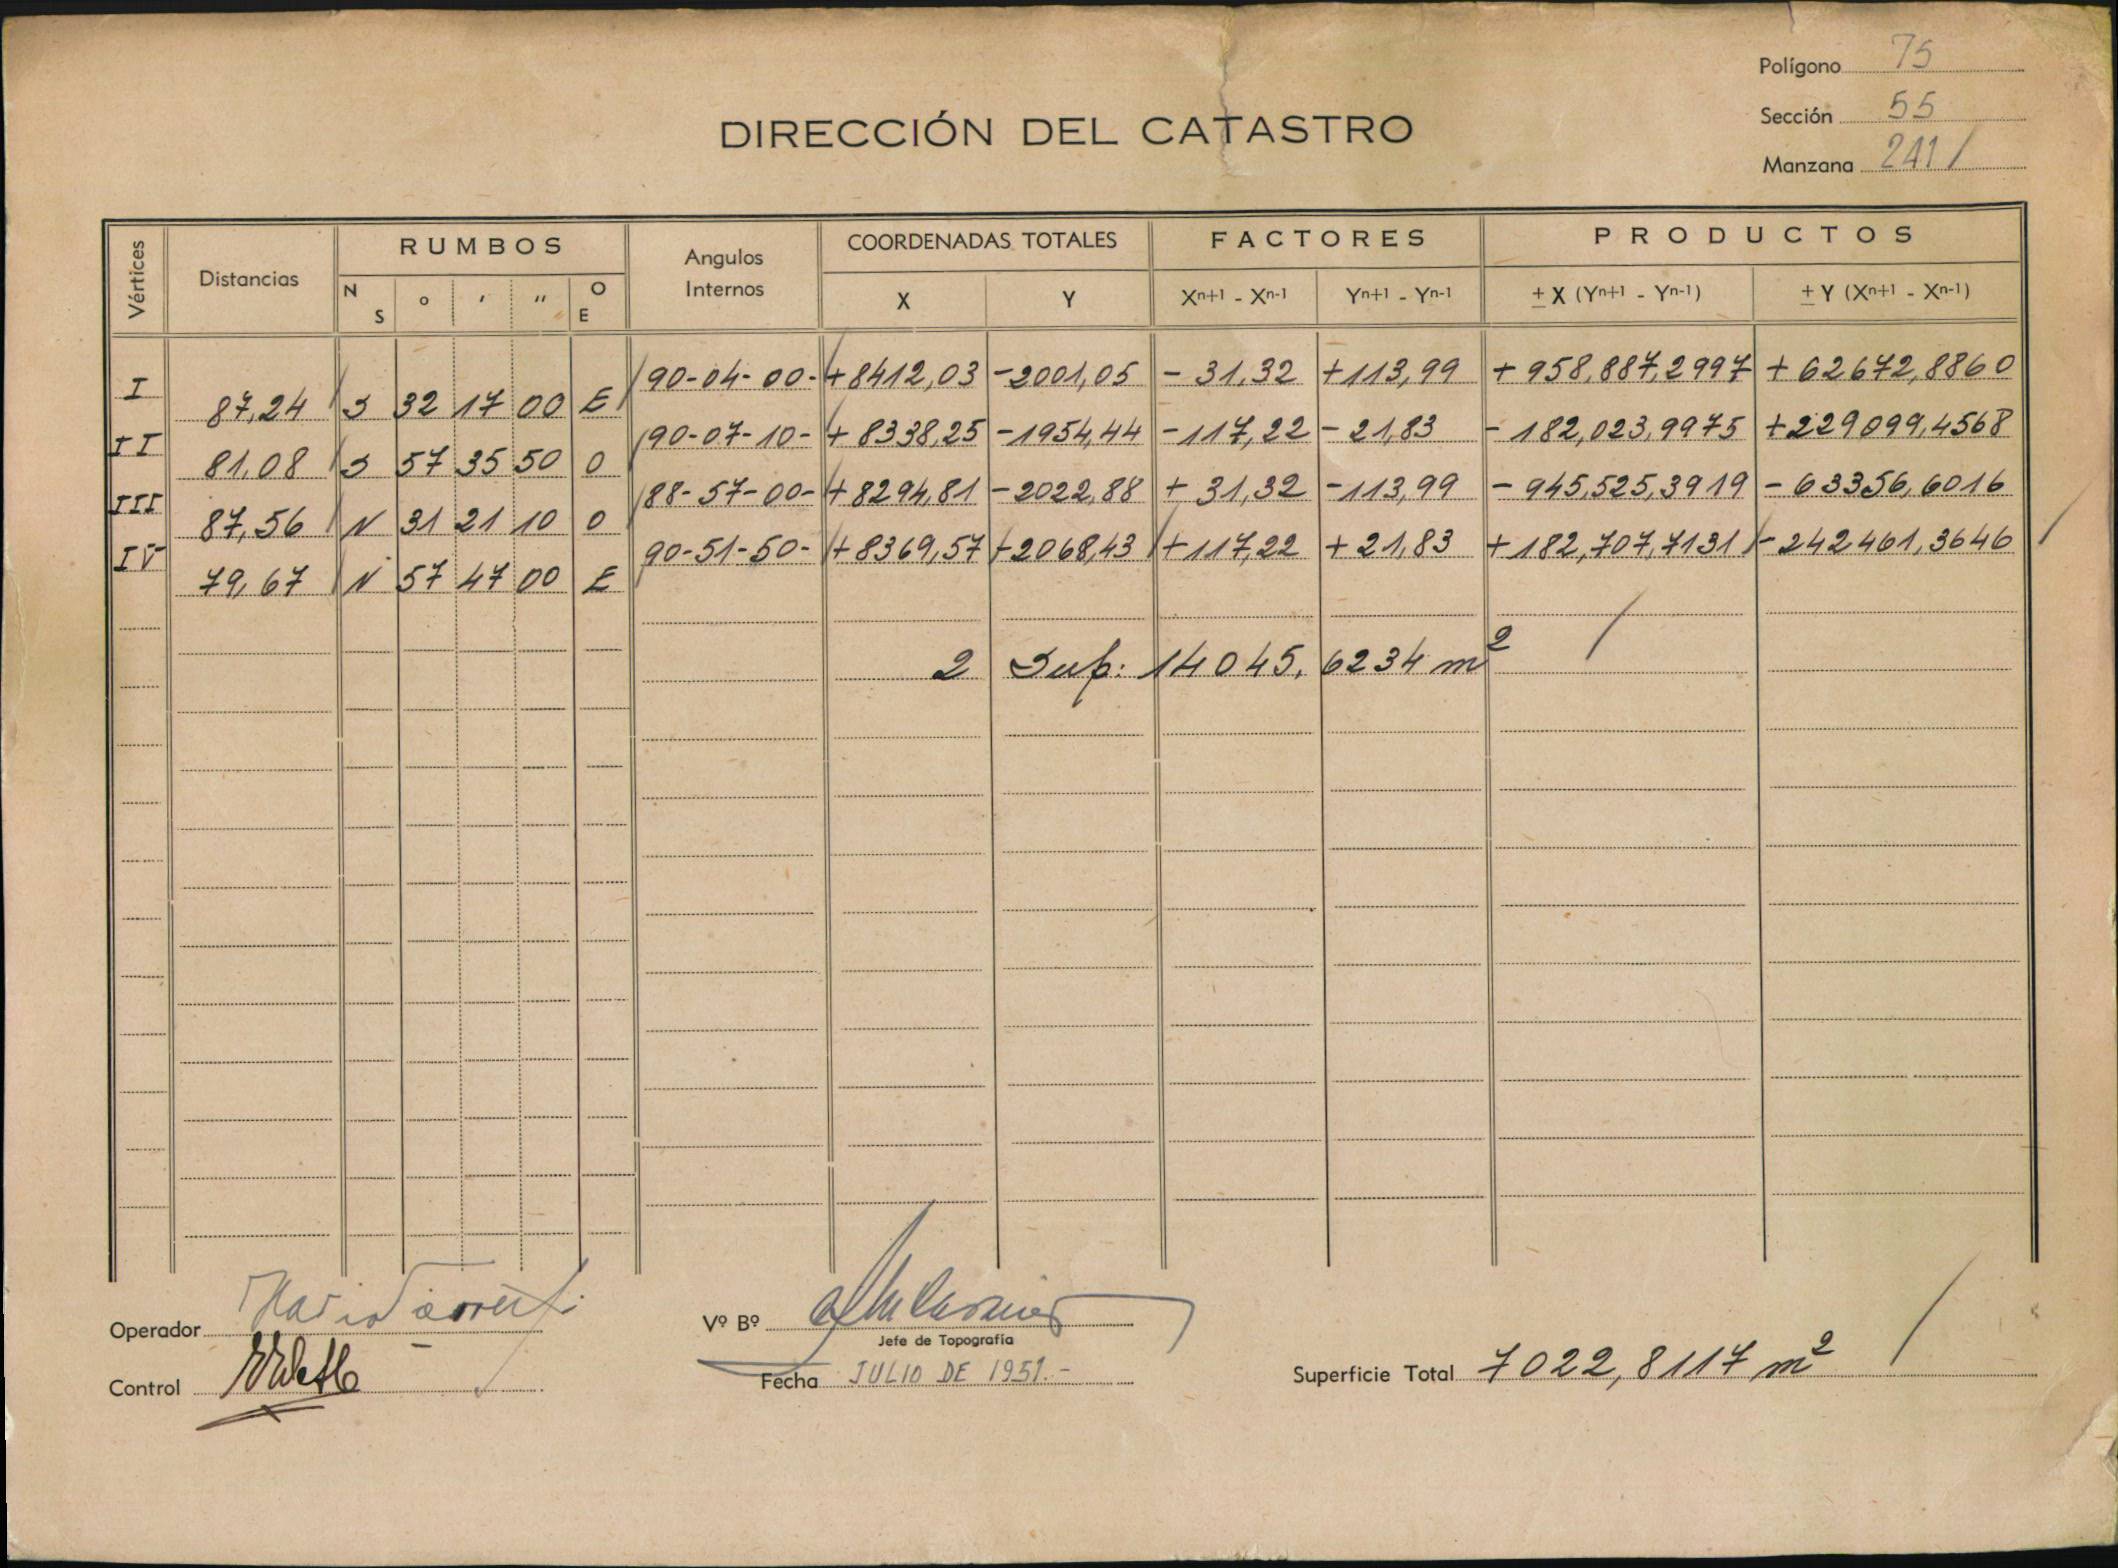 Polígono 75
Sección 55
Manzana 241 /
DIRECCIÓN DEL CATASTRO
Vértices Distancias RUMBOS Angulos Internos COORDENADAS TOTALES FACTORES PRODUCTOS
N S ° ' " O E X Y Xn+1 - Xn-1 Yn+1 - Yn-1 ± X (Yn+1 - Yn-1) ± Y (Xn+1 - Xn-1)
I 90-04-00- +8412,03 -2001,05 -31,32 +113,99 +958,887,2997 +62672,8860
87,24 S 32 17 00 E
II 90-07-10- +8338,25 -1954,44 -117,22 -21,83 -182,023,9975 +229099,4568
81,08 S 57 35 50 O
III 88-57-00- +8294,81 -2022,88 +31,32 -113,99 -945,525,3919 -63356,6016
87,56 N 31 21 10 O
IV 90-51-50- +8369,57 -2068,43 +117,22 +21,83 +182,707,7131 -242461,3646
79,67 N 57 47 00 E
2 Sup: 14045,6234 m2
Operador
Vº Bº
Jefe de Topografía
Control
Fecha JULIO DE 1951.-
Superficie Total 7022,8117 m2